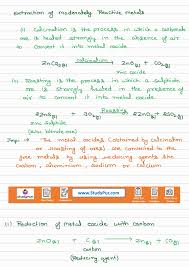 Extraction of moderately Reactive metals
(i) Calcination is the process in which a carbonate
ore is heated strongly in the absence of air
to convert it into metal oxide.
ZnCO₃(s) calcination→ ZnO(s) + CO₂(g)
zinc oxide
(ii) Roasting is the process in which a sulphide
ore is strongly heated in the presence of
air to convert it into metal oxide.
2ZnS(s) + 3O₂(g) Roasting→ 2ZnO(s) + 2SO₂(g)
Zinc Sulphide
(Zinc blende ore)
Imp → The metal oxides (obtained by calcination
or roasting of ores) are converted to the
free metals by using reducing agents like
carbon, aluminium, sodium or calcium
www.StudyPur.com
(i) Reduction of metal oxide with carbon
ZnO(s) + C(s) → Zn(s) + CO(g)
(Reducing agent)